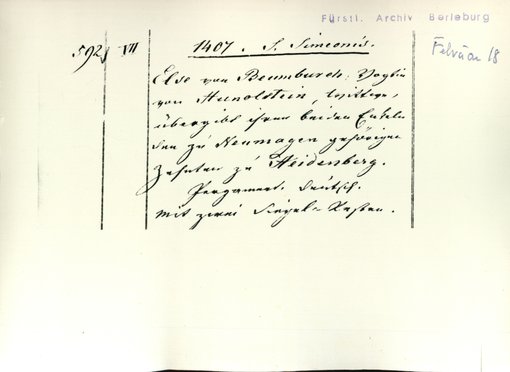 Fürstl. Archiv Berleburg
592 VII 1407. S. Simeonis. Februar 18
Else von Beumburch, Vogtin
von Hunolstein, Wittwe,
übergibt ihren beiden Enkeln
den zu Neumagen gehörigen
Zehnten zu Heidenberg.
Pergament. Deutsch.
Mit zwei Siegel-Resten.